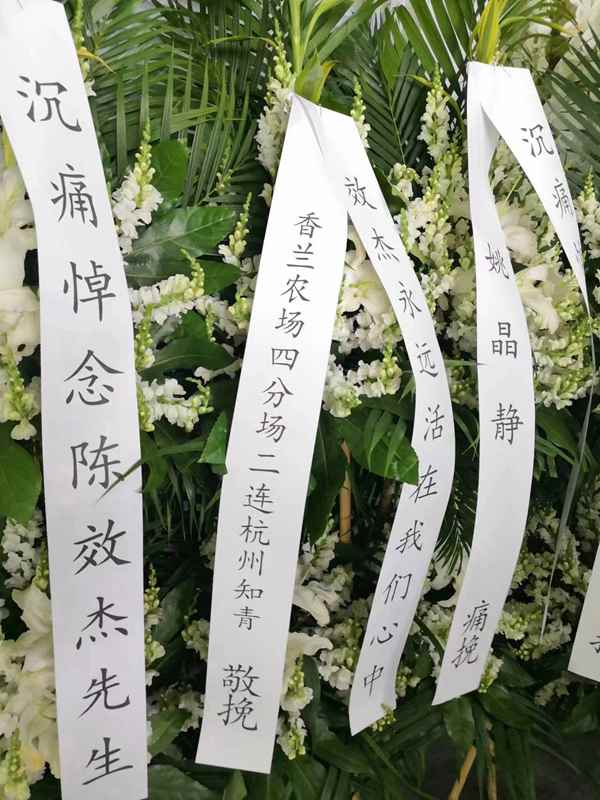 沉痛悼念陈效杰先生
香兰农场四分场二连杭州知青 敬挽
效杰永远活在我们心中
姚晶静 痛挽
沉痛